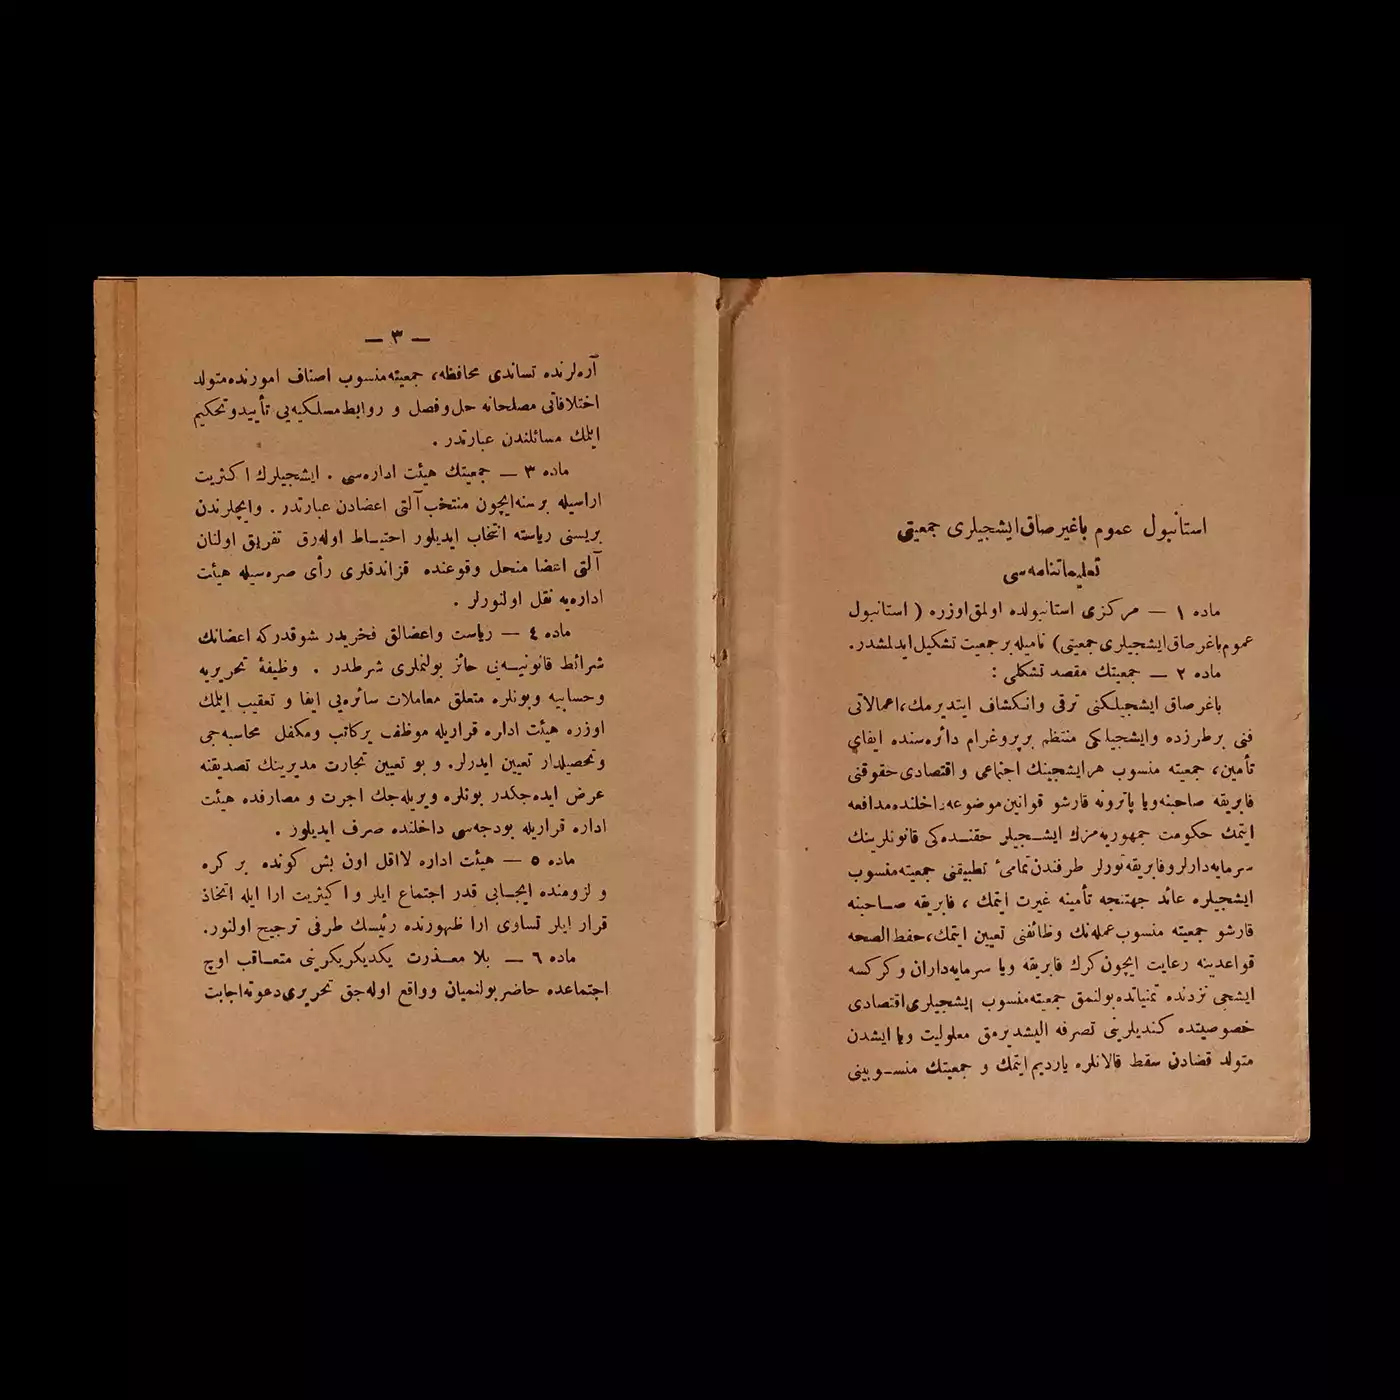 استانبول عموم باغیرصاق ایشجیلری جمعیتی
تعلیماتنامه‌سی
ماده ١ — مرکزی استانبولده اولمق اوزره ( استانبول
عموم باغرصاق ایشجیلری جمعیتی ) نامیله بر جمعیت تشکیل ایدلمشدر.
ماده ٢ — جمعیتك مقصد تشکلی :
باغرصاق ایشجیلکنی ترقی وانکشاف ایتدیرمك، اعمالاتی
فنی بر طرزده وایشجیلکی منتظم بر پروغرام دائره‌سنده ایفای
تأمین، جمعیته منسوب هر ایشجینك اجتماعی و اقتصادی حقوقنی
فابریقه صاحبنه ویا پاترونه قارشو قوانین موضوعه داخلنده مدافعه
ایتمك حکومت جمهوریه‌مزك ایشـجیلر حقنـده‌کی قانونلرینك
سرمایه‌دارلر وفابریقه‌تورلر طرفندن تمامیٔ تطبیقنی جمعیته منسوب
ایشجیلره عائد جهتنجه تأمینه غیرت ایتمك ، فابریقه صـاحبنه
قارشو جمعیته منسوب عمله‌نك وظائفنی تعیین ایتمك، حفظ الصحه
قواعدینه رعایت ایچون کرك فابریقه ویا سرمایه‌داران و کرکسه
ایشجی نزدنده تمنیاتده بولنمق جمعیته منسوب ایشجیلری اقتصادی
خصوصیتده کندیلرینی تصرفه الیشدیرمق معلولیت ویا ایشدن
متولد قضادن سقط قالانلره یاردیم ایتمك و جمعیتك منسـوبینی
— ٣ —
آره‌لرنده تساندی محافظه، جمعیته منسوب اصناف امورنده متولد
اختلافاتی مصلحانه حل وفصل و روابط مسلکیه‌یی تأیید و تحکیم
ایلمك مسائلندن عبارتدر .
ماده ٣ — جمعیتك هیئت اداره‌سی . ایشجیلرك اکثریت
اراسیله بر سنه ایچون منتخب آلتی اعضادن عبارتدر . وایچلرندن
بریسنی ریاسته انتخاب ایدیلور احتیـاط اوله‌رق تفریق اولنان
آلتی اعضا منحل وقوعنده قزاندقلری رأی صره‌سیله هیئت
اداره‌یه نقل اولنورلر .
ماده ٤ — ریاست واعضالق فخریدر شوقدرکه اعضانك
شرائط قانونیـه‌یی حائز بولنملری شرطدر . وظیفهٔ تحریریه
وحسابیه وبونلره متعلق معاملات سائره‌یی ایفا و تعقیب ایلمك
اوزره هیئت اداره قراریله موظف برکاتب ومکفل محاسبه‌جی
وتحصیلدار تعیین ایدرلر. و بو تعیین تجارت مدیرینك تصدیقنه
عرض ایده‌جکدر بونلره ویریله‌جك اجرت و مصارفده هیئت
اداره قراریله بودجه‌سی داخلنده صرف ایدیلور .
ماده ٥ — هیئت اداره لااقل اون بش کونده بر کره
و لزومنده ایجـابی قدر اجتماع ایلر و اکیثریت ارا ایله اتخاذ
قرار ایلر تساوی ارا ظهورنده رئیسك طرفی ترجیح اولنور.
ماده ٦ — بلا معـذرت یکدیکریکرینی متعـاقب اوچ
اجتماعده حاضر بولنمیان وواقع اوله‌جق تحریری دعوته اجابت